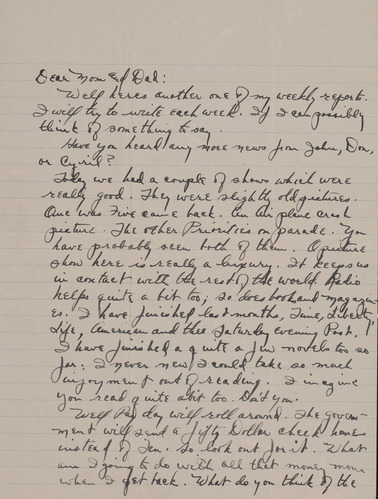 Dear Mom and Dad:
Well heres another one of my weekly reports.
I will try to write each week. If I can possibly
think of something to say.
Have you heard any more news from John, Don,
or Cyril?
Today we had a couple of shows which were
really good. They were slightly old pictures.
One was Five came back. An air plane crash
picture. The other Priorities on parade. You
have probably seen both of them. A picture
show here is really a luxury. It keeps us
in contact with the rest of the world. Radio
helps quite a bit too; so does books and magazin-
es. I have finished last months, Time, Liberty
Life, American and the Saturday evening Post.
I have finished a quite a few novels too so
far; I never new I could take so much
enjoyment out of reading. I imagine
you read quite a bit too. Do you.
Well Pay day will roll around. The govern-
ment will send a fifty Dollar check home
instead of Ten. so look out for it. What
am I going to do with all that money mom
when I get back. What do you think of the